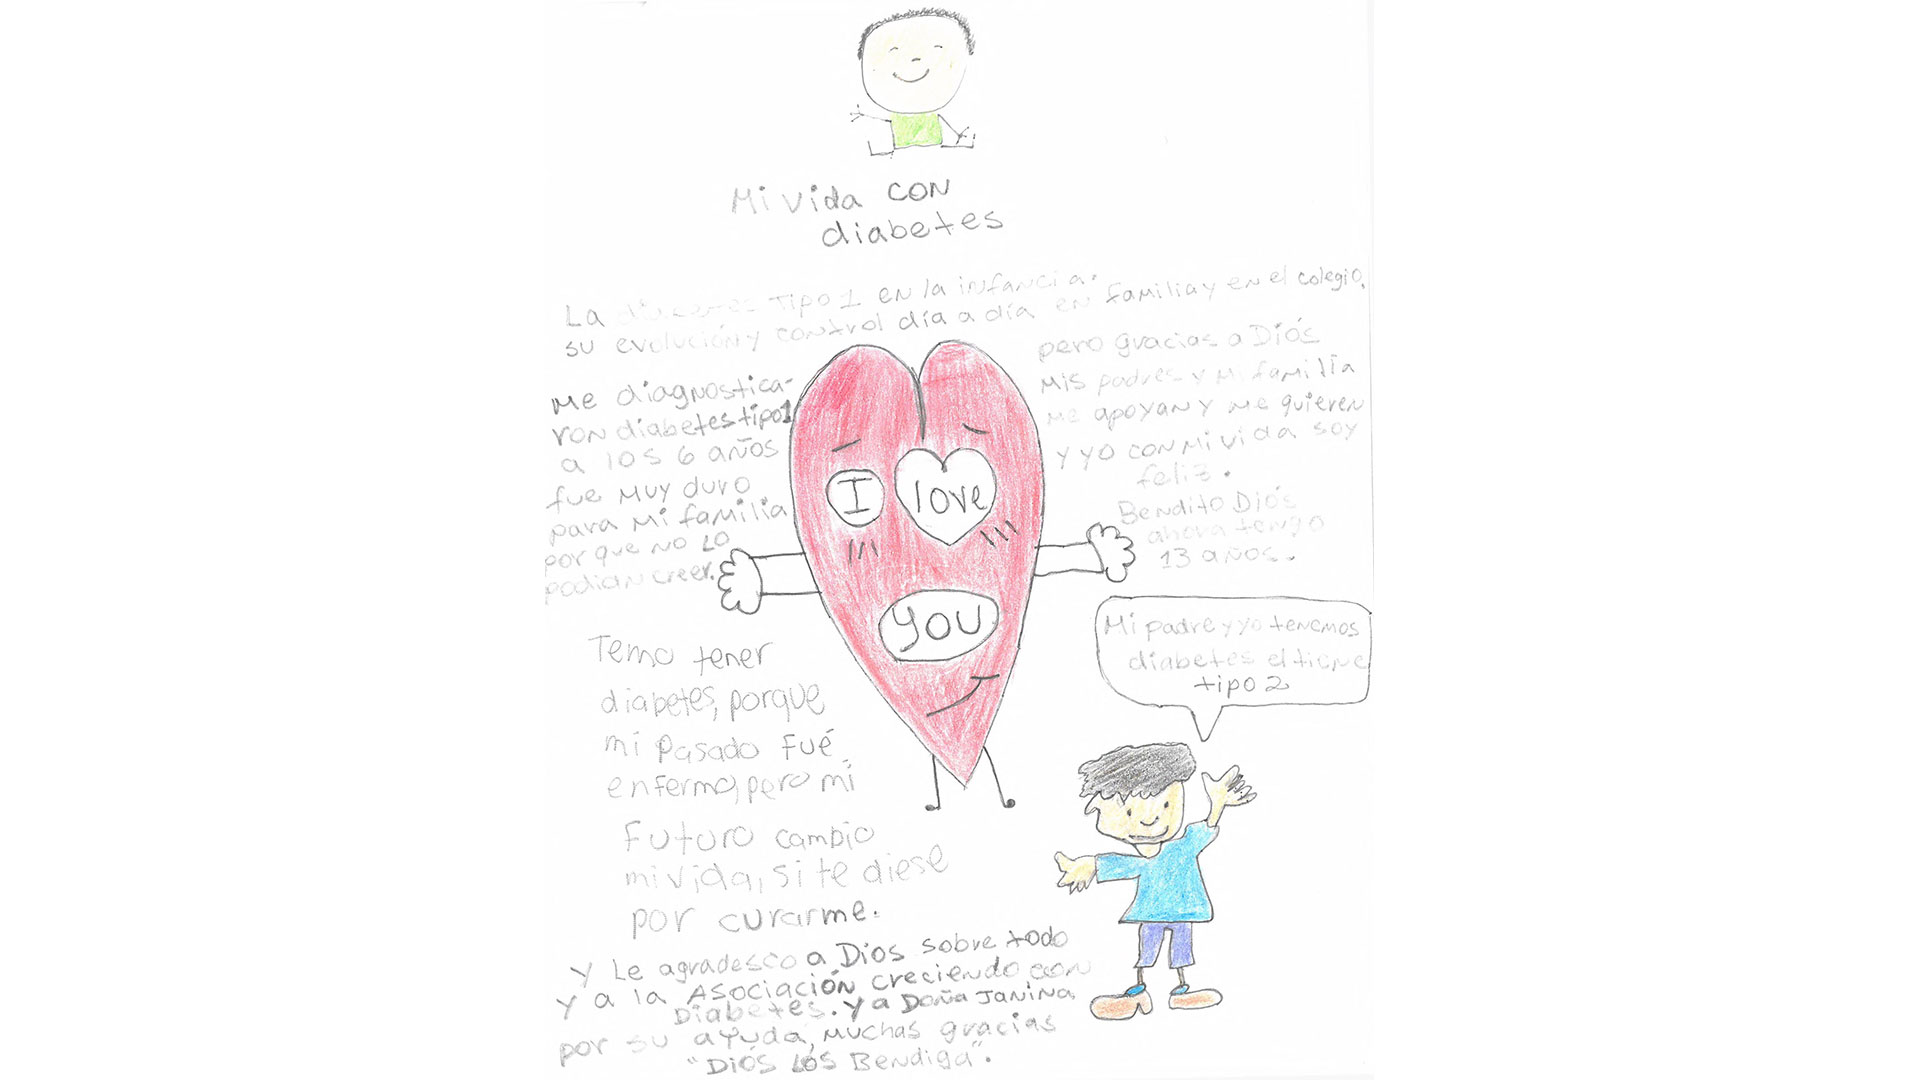 Mi vida con
diabetes
La diabetes Tipo 1 en la infancia.
su evolución y control día a día en familia y en el colegio.
Me diagnostica-
ron diabetes tipo 1
a los 6 años
fue muy duro
para mi familia
por que no lo
podian creer.
pero gracias a Diós
mis padres y mi familia
me apoyan y me quieren
y yo con mi vida soy
feliz.
Bendito Diós
ahora tengo
13 años.
I love
you
Mi padre y yo tenemos
diabetes el tiene
tipo 2
Temo tener
diabetes, porque
mi pasado fué
enfermo, pero mi
Futuro cambio
mi vida, si te diese
por curarme.
y Le agradesco a Dios sobre todo
y a la Asociación creciendo con
Diabetes. y a Doña Janina
por su ayuda, muchas gracias
"Diós Los Bendiga".